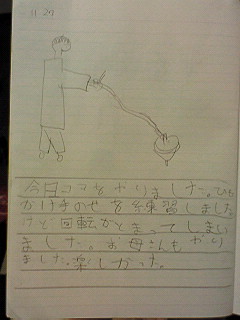 11 27
今日ココをやりました。ひも
かけ手のせを練習しました
けど回転がとまってしまい
ました。お母さんもやり
ました。楽しかった。